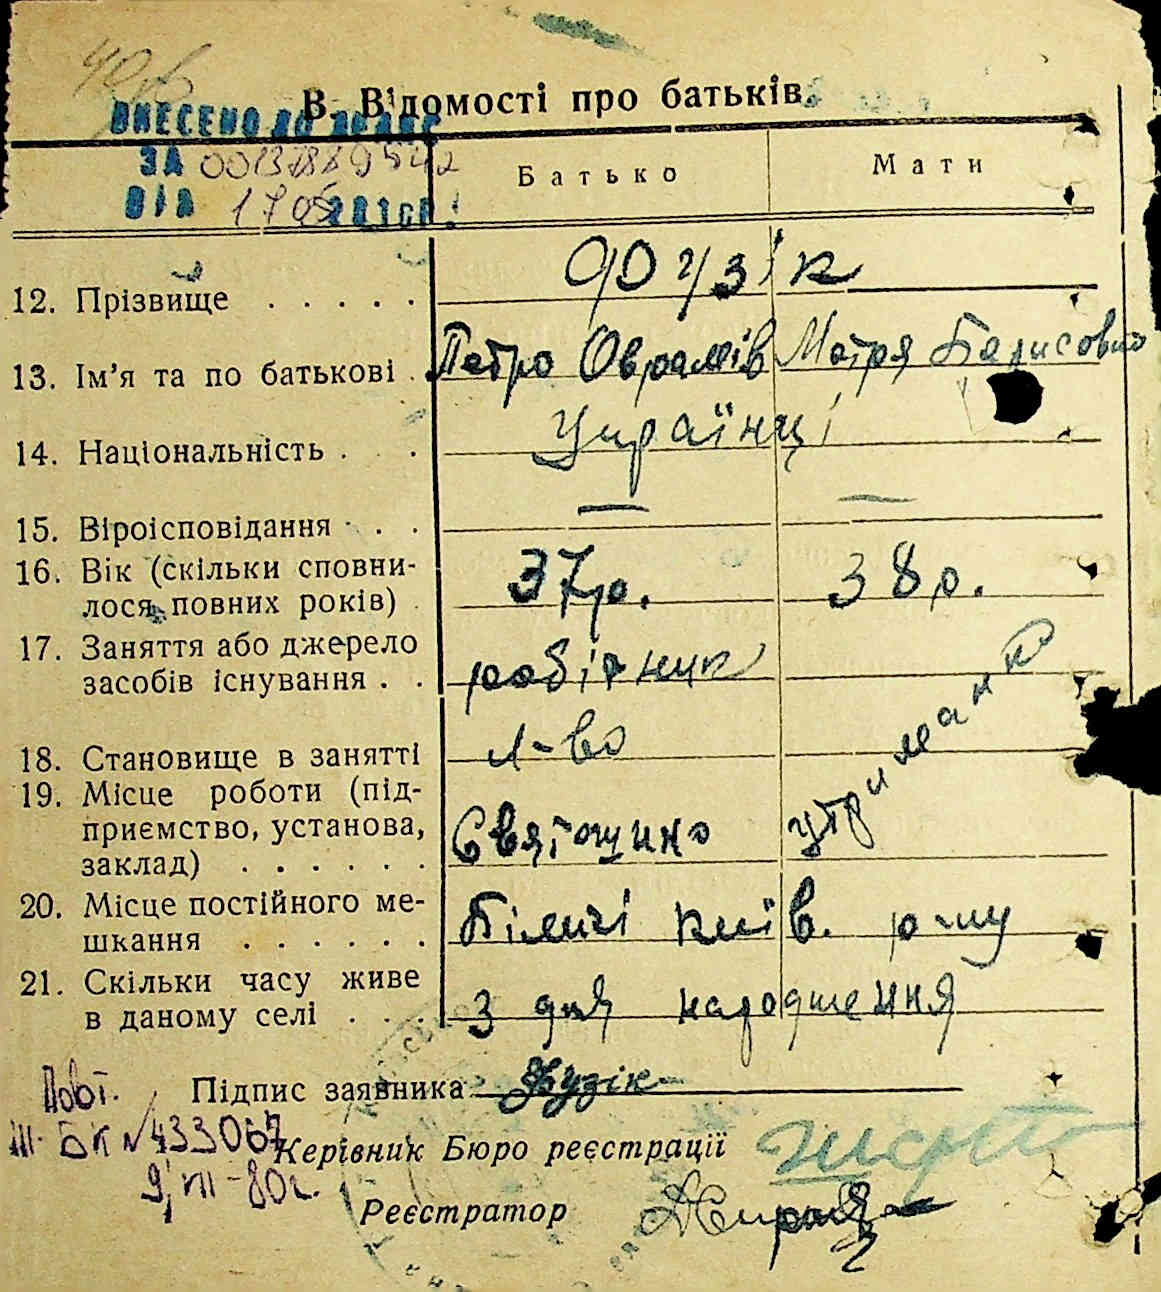 В. Відомості про батьків.
ВНЕСЕНО ДО ДРАЦС
ЗА 00137889542
ВІД 17 05 201
Батько Мати
12. Прізвище . . . . .
13. Ім'я та по батькові . Петро Оврамів Мотря Борисовна
14. Національність . . . Українці
15. Віроісповідання . . . — —
16. Вік (скільки сповни-
лося повних років) . 37 р. 38 р.
17. Заняття або джерело
засобів існування . . робітник утриманка
18. Становище в занятті л-во
19. Місце роботи (під-
приємство, установа,
заклад) . . . . . . Святошино
20. Місце постійного ме-
шкання . . . . . . Біличі Київ. р-ну
21. Скільки часу живе
в даному селі . . . з дня народження
Підпис заявника
Повт.
III-БК № 433067
Керівник Бюро реєстрації
9/VII-80 г.
Реєстратор